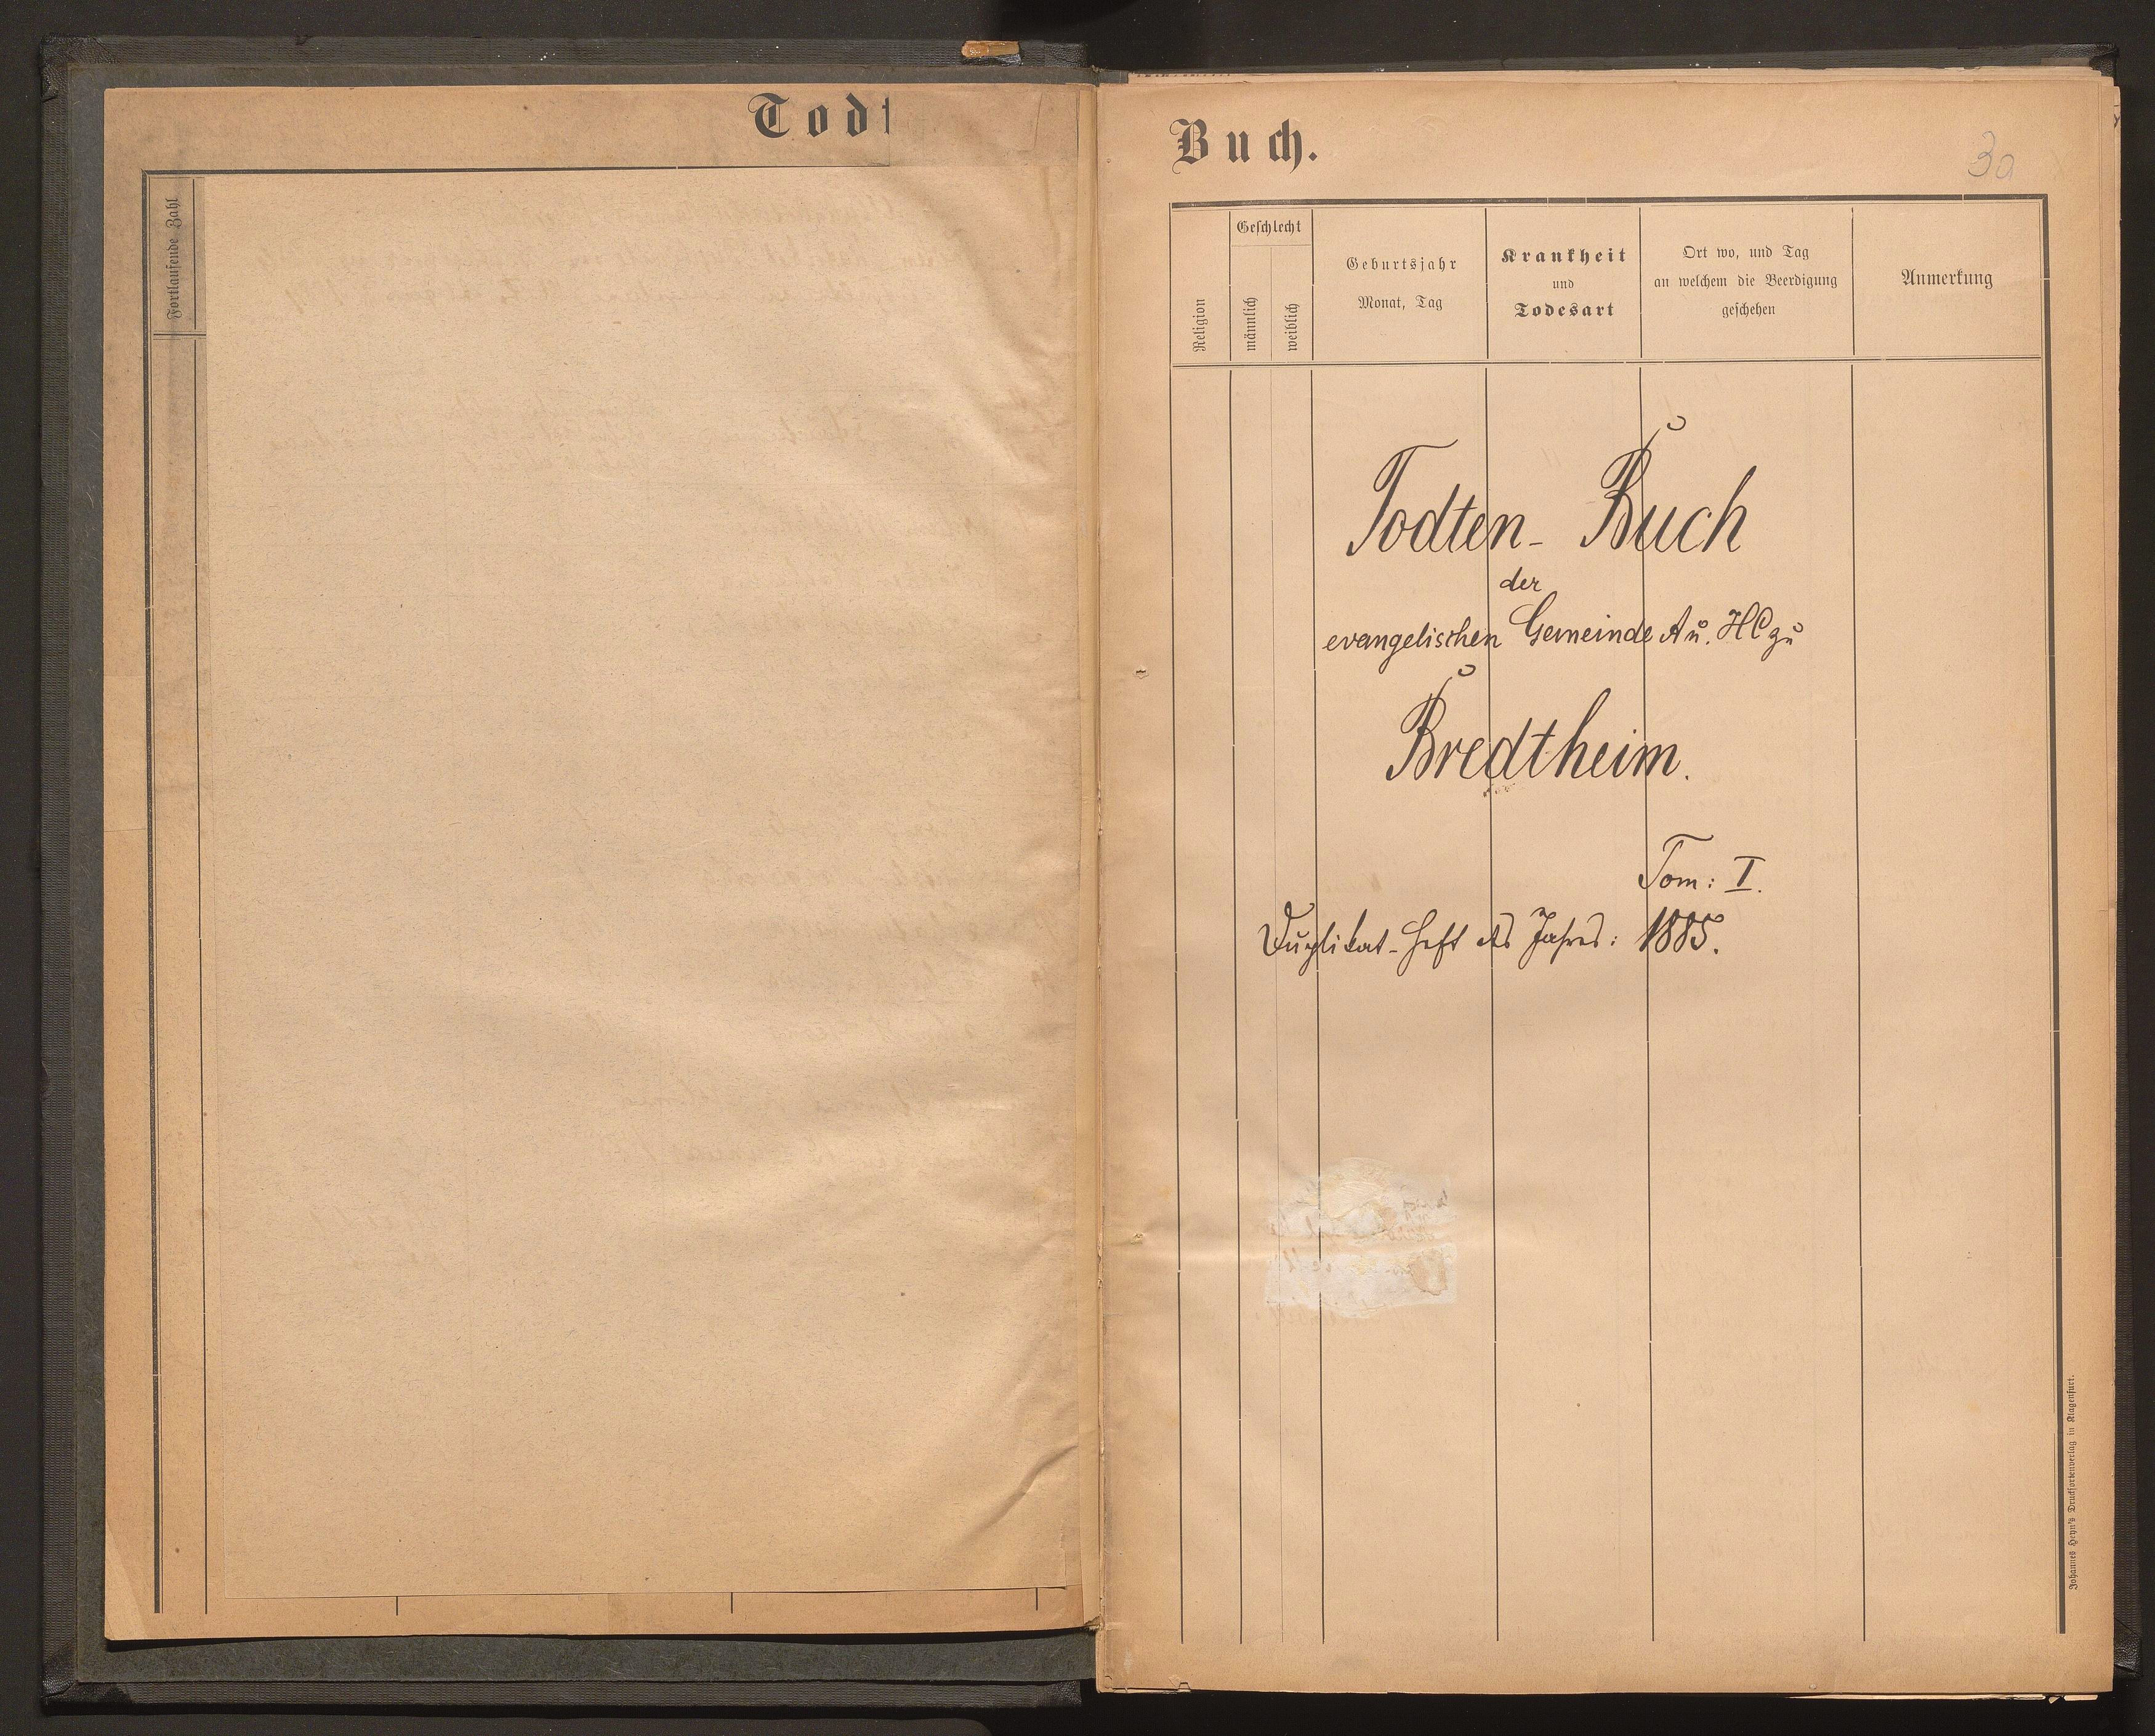 Todt
Fortlaufende Zahl
Buch.
30
Religion
Geschlecht
männlich
weiblich
Geburtsjahr
Monat, Tag
Krankheit
und
Todesart
Ort wo, und Tag
an welchem die Beerdigung
geschehen
Anmerkung
Todten-Buch
der
evangelischen Gemeinde A u. HC zu
Bredtheim.
Tom: I.
Duplikat-Heft des Jahres: 1885.
Johannes Heyn's Drucksortenverlag in Klagenfurt.